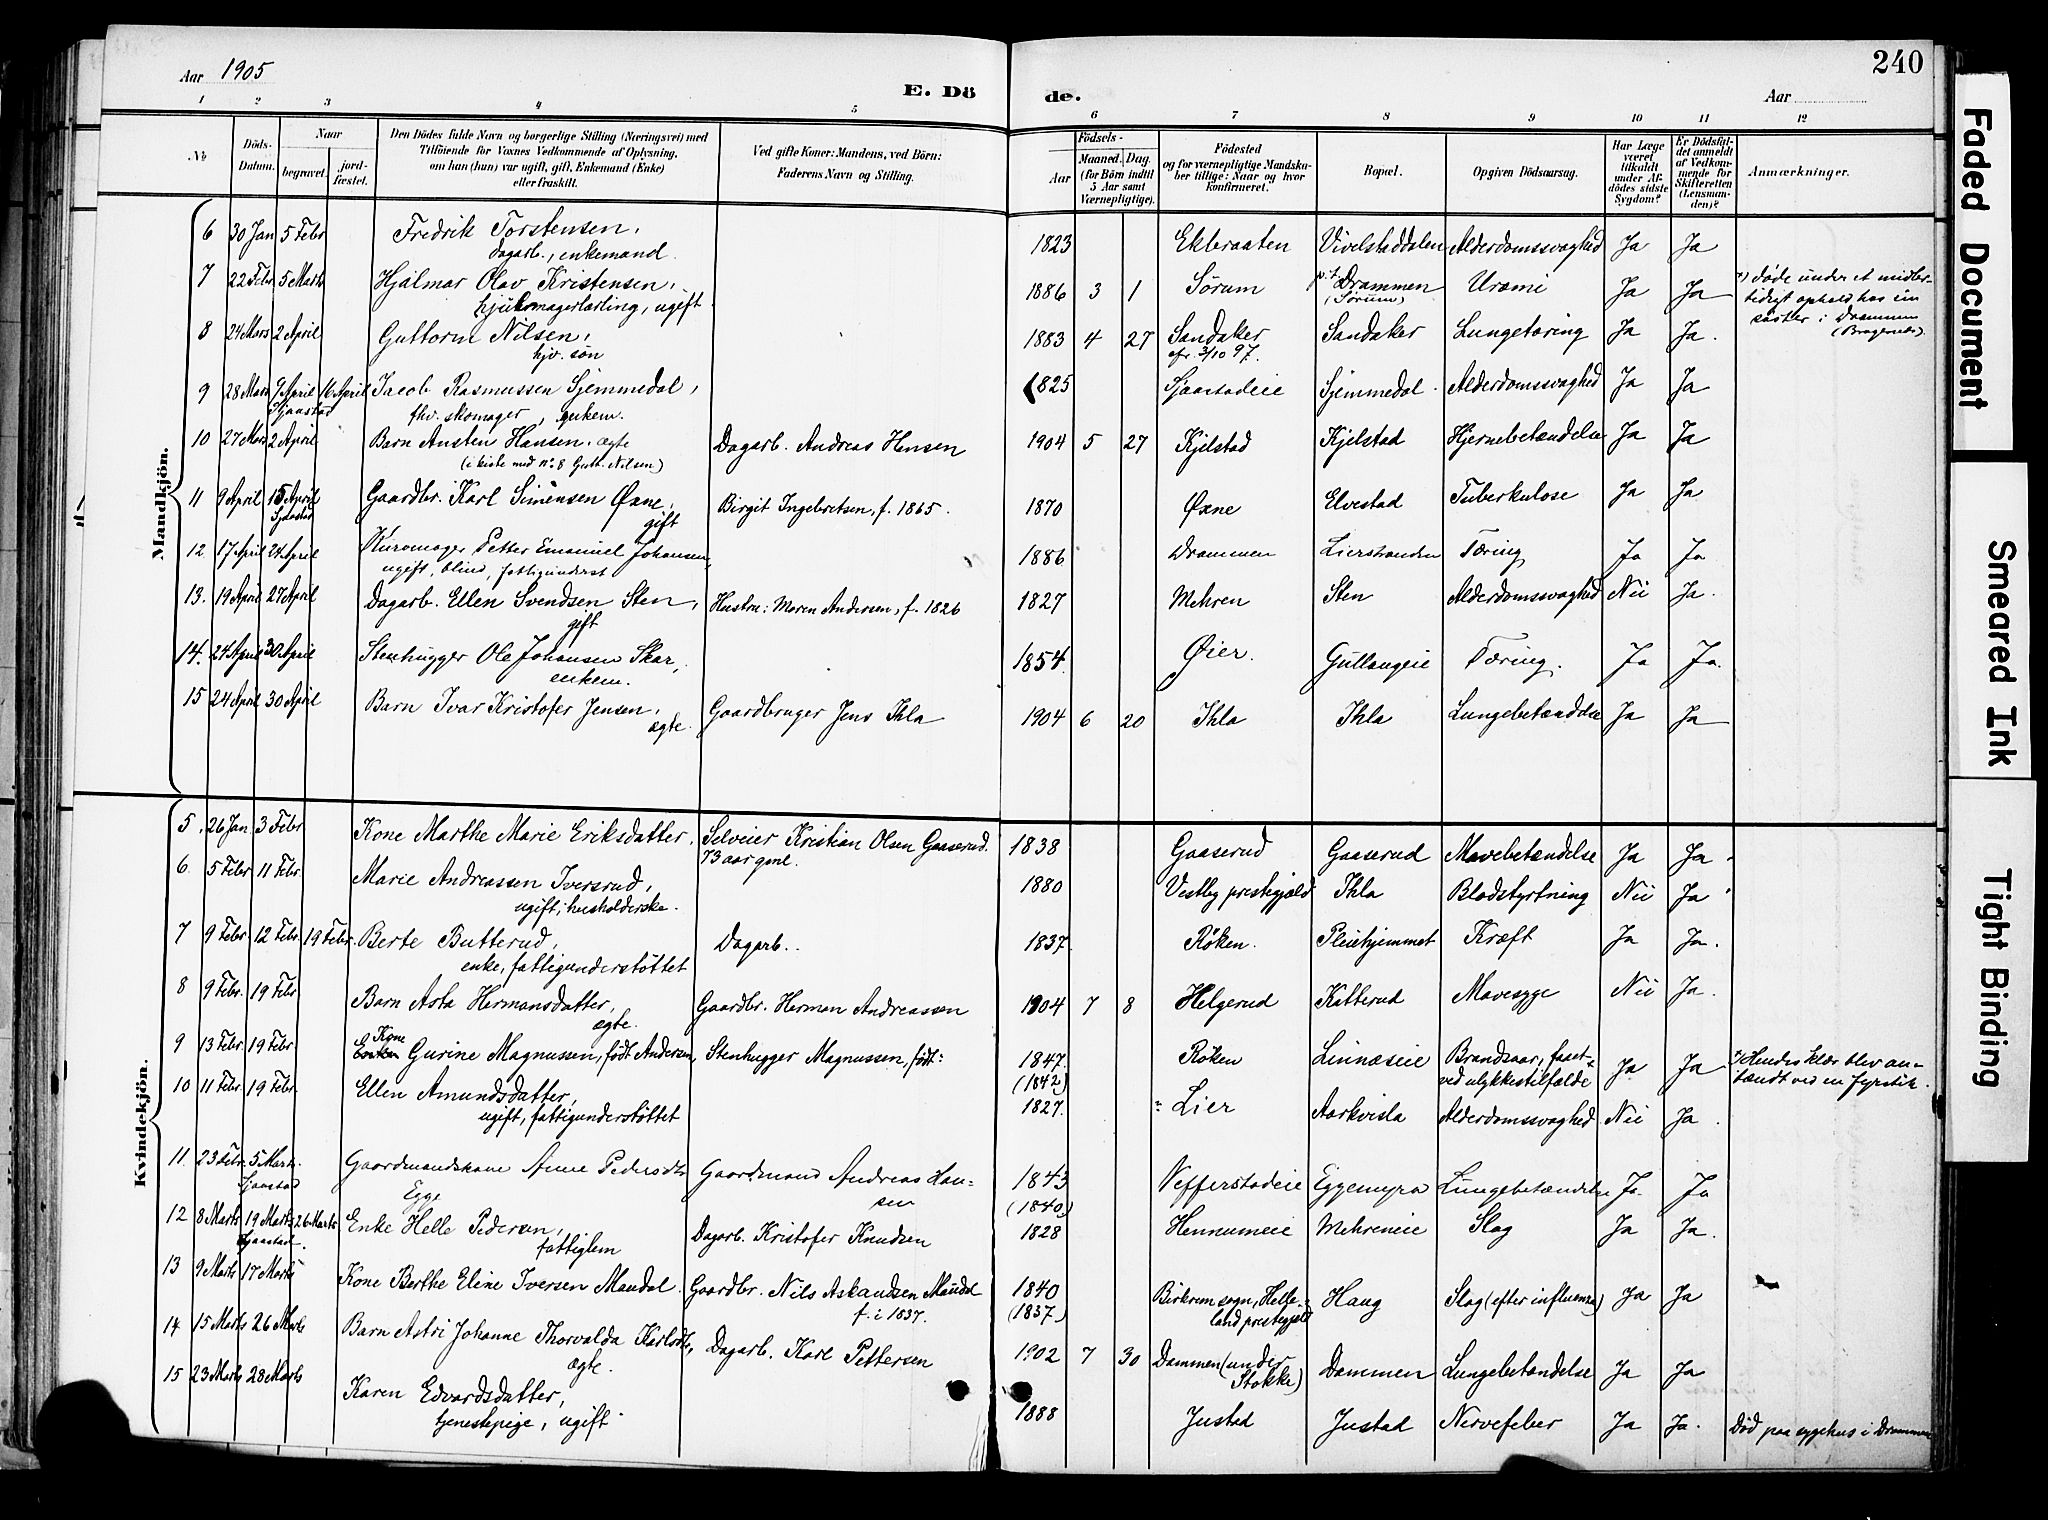 240
Aar 1905
E. Dö de.
Aar
1 2 3 4 5 6 7 8 9 10 11 12
№
Döds-Datum.
Naar
begravet.
jord-fæstet.
Den Dödes fulde Navn og borgerlige Stilling (Næringsvei) med
Tilföiende for Voxnes Vedkommende af Oplysning,
om han (hun) var ugift, gift, Enkemand (Enke)
eller fraskilt.
Ved gifte Koner: Mandens, ved Börn:
Faderens Navn og Stilling.
Födsels-
Aar
Maaned. Dag.
(for Börn indtil
5 Aar samt
Værnepligtige).
Födested
og for værnepligtige Mandska-
ber tillige: Naar og hvor
konfirmeret.
Bopæl.
Opgiven Dödsaarsag.
Har Læge
været
tilkaldt
under Af-
dödes sidste
Sygdom?
Er Dödsfal-
det anmeldt
af Vedkom-
mende for
Skifteretten
(Lensman-
den)?
Anmærkninger.
Mandkjön.
6 30 Jan 5 Febr Fredrik Torstensen, 1823 Ekbraaten Vivelstaddalen Alderdomssvaghed Ja Ja
Dagarb., enkemand.
7 22 Febr 5 Marts Hjalmar Olav Kristensen, 1886 3 1 Sørum p.t. Drammen Uræmi Ja Ja døde under et midler-
hjulmagerlærling, ugift (Sørum) tidigt ophold hos en
søster i Drammen
(Bragernes)
8 24 Mars 2 April Guttorm Nilsen, 1883 4 27 Sandaker Sandaker Lungetæring Ja Ja.
hjv. søn cfr. 3/10 97.
9 28 Mars 9 April 16 April Jacob Rasmussen Gjemmedal, 1825 Sjaastadeie Gjemmedal Alderdomssvaghed Ja Ja
Sjaastad fhv. skomager, enkem.
10 27 Mars 2 April Barn Austen Hansen, ægte Dagarb. Andreas Hansen 1904 5 27 Kjelstad Kjelstad Hjernebetændelse Ja Ja
(i kiste med no 8 Gutt. Nilsen)
11 9 April 15 April Gaardbr. Karl Simensen Øxne, Birgit Ingebretsen, f. 1865. 1870 Øxne Elvestad Tuberkulose Ja Ja
Sjaastad gift
12 17 April 24 April Kurvmager Petter Emanuel Johansen, 1886 Drammen Lierstranden Tæring Ja Ja
ugift, blind, fattigunderst
13. 19 April 27 April Dagarb. Ellen Svendsen Sten, Hustru: Maren Andersen, f. 1826 1827 Mehren Sten Alderdomssvaghed Nei Ja.
gift
14. 24 April 30 April Stenhugger Ole Johansen Skar, 1854. Øier. Gullaugeie Tæring. Ja Ja.
enkem.
15 24 April 30 April Barn Ivar Kristofer Jensen, Gaardbruger Jens Ihla 1904 6 20 Ihla Ihla Lungebetændelse Ja Ja
ægte.
Kvindekjön.
5. 26 Jan. 3 Febr Kone Marthe Marie Eriksdatter. Selveier Kristian Olsen Gaaserud. 1838 Gaaserud Gaaserud Mavebetændelse Ja Ja
73 aar gml.
6 5 Febr 11 Febr. Marie Andreassen Iversrud, 1880 Vestby prestegjæld Ihla Blodstyrtning Nei Ja
ugift, husholderske.
7 9 Febr 12 Febr. 19 Febr. Berte Butterud, Dagarb. 1837. Røken. Pleiehjemmet Kræft Ja Ja.
enke, fattigunderstøttet
8 9 Febr. 19 Febr Barn Asta Hermansdatter, Gaardbr. Herman Andreassen 1904 7 8 Helgerud Katterud Mavesyge Nei Ja.
ægte.
9 13 Febr. 19 Febr. Kone Enke Gurine Magnussen, født Andersen, Stenhugger Magnussen, født: 1847. Røken Linnæseie Brandsaar, faaet Ja Ja Hendes klær blev an-
(1842) ved ulykkestilfælde tændt ved en fyrstik.
10 11 Febr. 19 Febr. Ellen Amundsdatter, 1827. Lier Aarkvisla Alderdomssvaghed Nei Ja.
ugift, fattigunderstøttet
11. 23 Febr. 5 Marts. Gaardmandskone Anne Pedersdtr Gaardmand Andreas Han- 1843 Nefferstadeie Eggemyra Lungebetændelse Ja. Ja
Sjaastad Egge sen (1840)
12 8 Marts 19 Marts 26 Marts Enke Helle Pedersen, Dagarb. Kristofer Knudsen 1828 Hennumeie Mehreneie Slag Ja Ja.
Sjaastad. fattiglem
13 9 Marts 17 Marts Kone Berthe Eline Iversen Maudal. Gaardbr. Nils Askandsen Maudal 1840 Birkrem sogn, Helle- Haug Slag (efter influenza) Ja Ja
f. i 1837. (1837) land prestegjæld
14 15 Marts 26 Marts Barn Astri Johanne Thorvalda Karlsdtr, Dagarb. Karl Pettersen 1902 7 30 Dammen (under Dammen Lungebetændelse Ja Ja
ægte. Stokke)
15 23 Marts 28 Marts Karen Edvardsdatter, 1888 Justad Justad Nervefeber Ja Ja. Død paa sygehus i Drammen
tjenestepige, ugift
Faded Document
Smeared Ink
Tight Binding